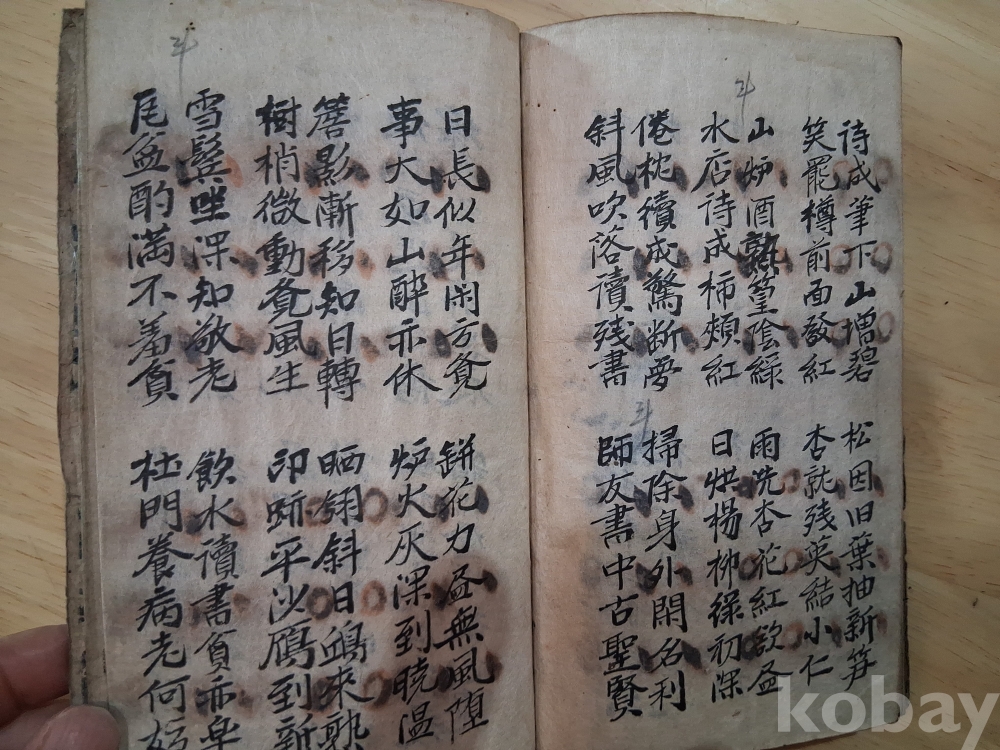 斗
詩成筆下山增碧
笑罷樽前面發紅
山炉酒熟篁陰綠
水店詩成柿頰紅
倦枕續成驚斷夢
斜風吹落讀残書
松因旧葉抽新笋
杏就残英結小仁
雨洗杏花紅欲盡
日烘楊柳綠初深
斗
掃除身外閑名利
師友書中古聖賢
斗
日長似年閑方覓
事大如山醉亦休
簷影漸移知日轉
樹梢微動覓風生
雪鬂坐深知敬老
瓦盆酌滿不羞貧
缾花力盡無風堕
炉火灰深到曉温
晒翎斜日鴻来熟
印跡平沙鴈到新
飮水讀書貧亦
杜門養病老何妨
kobay